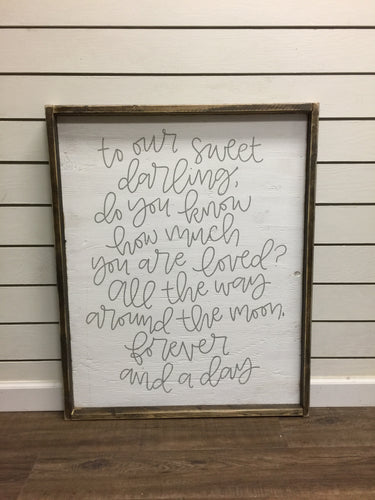 to our sweet
darling,
do you know
how much
you are loved?
all the way
around the moon,
forever
and a day